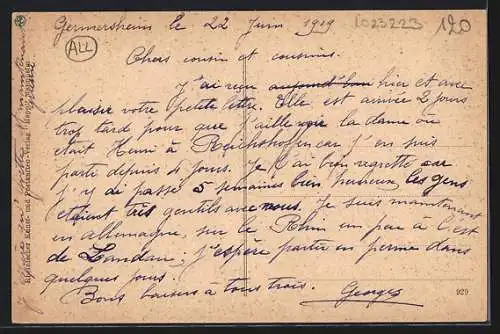 Germersheim le 22 Juin 1919
1023223
120
ALL
Chers cousin et cousines.
J'ai reçu aujourd'hui hier et avec
plaisir votre petite lettre. Elle est arrivée 2 jours
trop tard pour que j'aille voir la dame où
était Henri à Reichshoffen car j'en suis
parti depuis 4 jours. Je l'ai bien regretté car
j'y ai passé 5 semaines bien heureux, les gens
étaient très gentils avec nous. Je suis maintenant
en allemagne, sur le Rhin un peu à l'est
de Landau; j'espère partir en perme dans
quelques jours.
Bons baisers à tous trois.
Georges
929